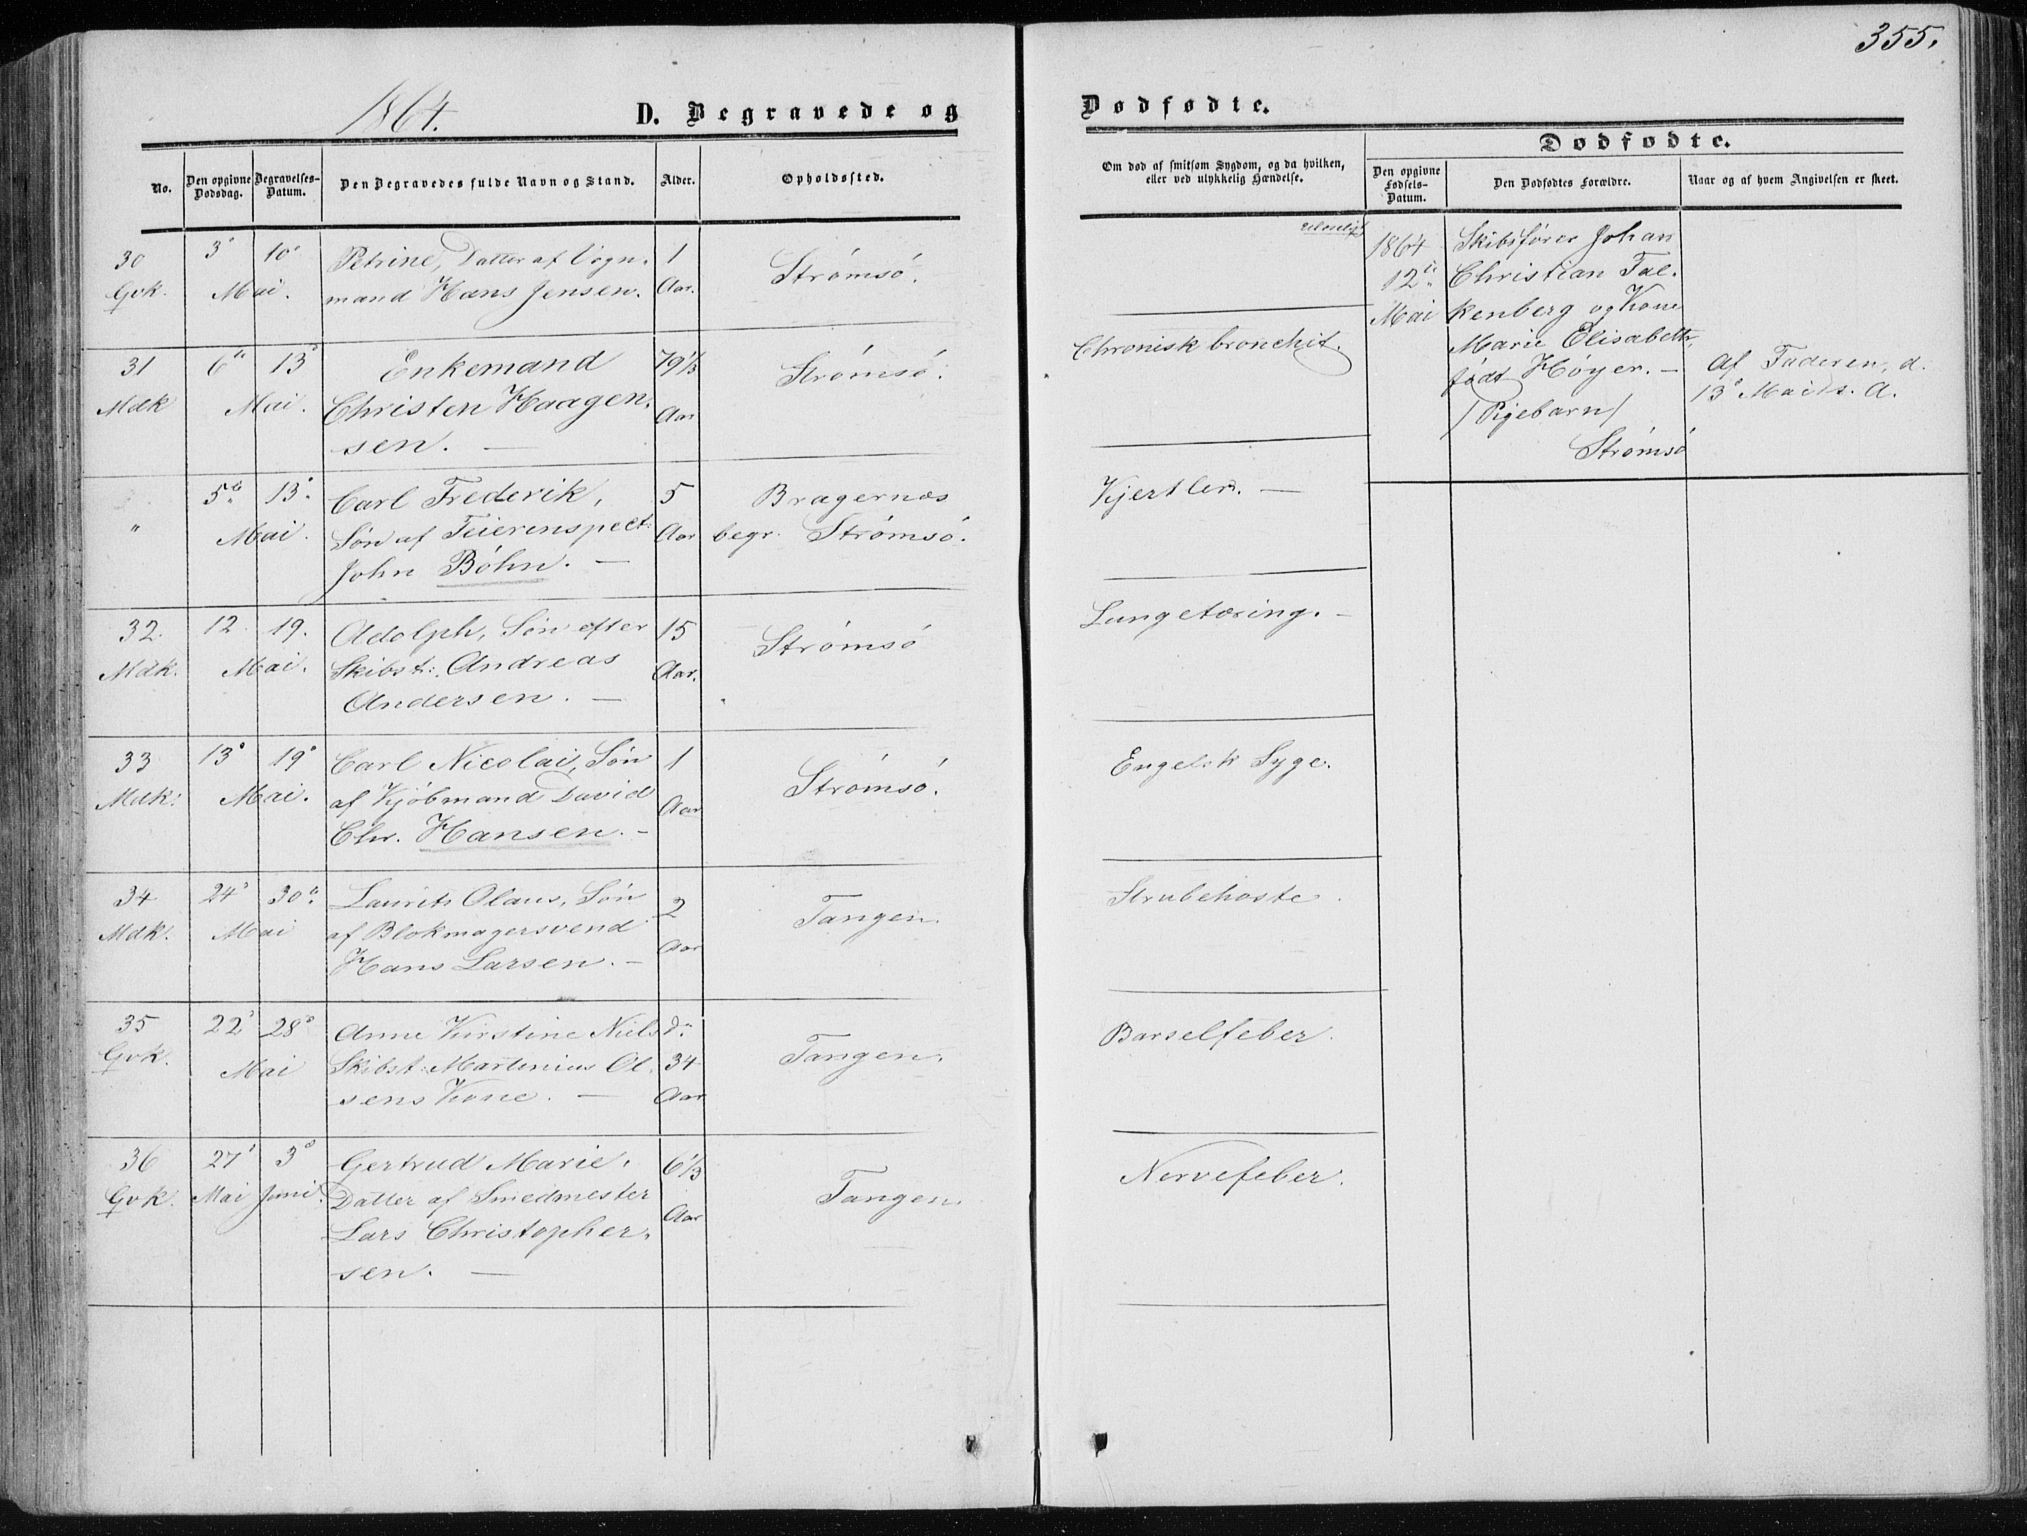 355.
1864.
D. Begravede og
Dødfødte.
No.
Den opgivne Dødsdag.
Begravelses-Datum.
Den Begravedes fulde Navn og Stand.
Alder.
Opholdssted.
Om død af smitsom Sygdom, og da hvilken,
eller ved ulykkelig Hændelse.
Dødfødte.
Den opgivne Fødsels-Datum.
Den Dødfødtes Forældre.
Naar og af hvem Angivelsen er skeet.
30 3' 10' Petrine, Datter af Vogn- 1 Strømsö.
Gvk. Mai. mand Hans Jensen. Aar.
31 6te 13' Enkemand 79 1/3 Strömsö. Chronisk bronchit.
Mdk Mai. Christen Haagen- Aar
sen. —
" 5te 13' Carl Frederik, 5 Bragernæs Kjertler. —
Mai. Søn af Feierinspect: Aar begr. Strømsö.
John Böhn. —
32. 12 19. Adolph, Søn efter 15 Strømsö Lungetæring. —
Mdk. Mai. Skibst: Andreas Aar.
Andersen. —
33 13' 19' Carl Nicolai, Søn 1 Strömsö. Engelsk Syge.
Mdk: Mai. af Kjöbmand David Aar
Chr. Hansen. —
34 24' 30te Laurits Olaus, Søn 2 Tangen. Strubehoste.
Mdk. Mai af Blokmagersvend Aar
Hans Larsen. —
35 22' 28' Anne Kirstine Nielsd: 34 Tangen. Barselfeber.
Gvk. Mai Skibst: Martinius Ol- Aar
sens Kone. —
36 27' 3' Gertrud Marie, 6 1/3 Tangen. Nervefeber.
Gvk. Mai Juni. Datter af Smedmester Aar
Lars Christopher-
sen. —
1864 Skibsfører Johan
12te Christian Fal-
Mai kenberg og Kone
Marie Elisabeth,
født Höyer. —
/Pigebarn/
Strømsö
Af Faderen, d.
13' Mai d. A.